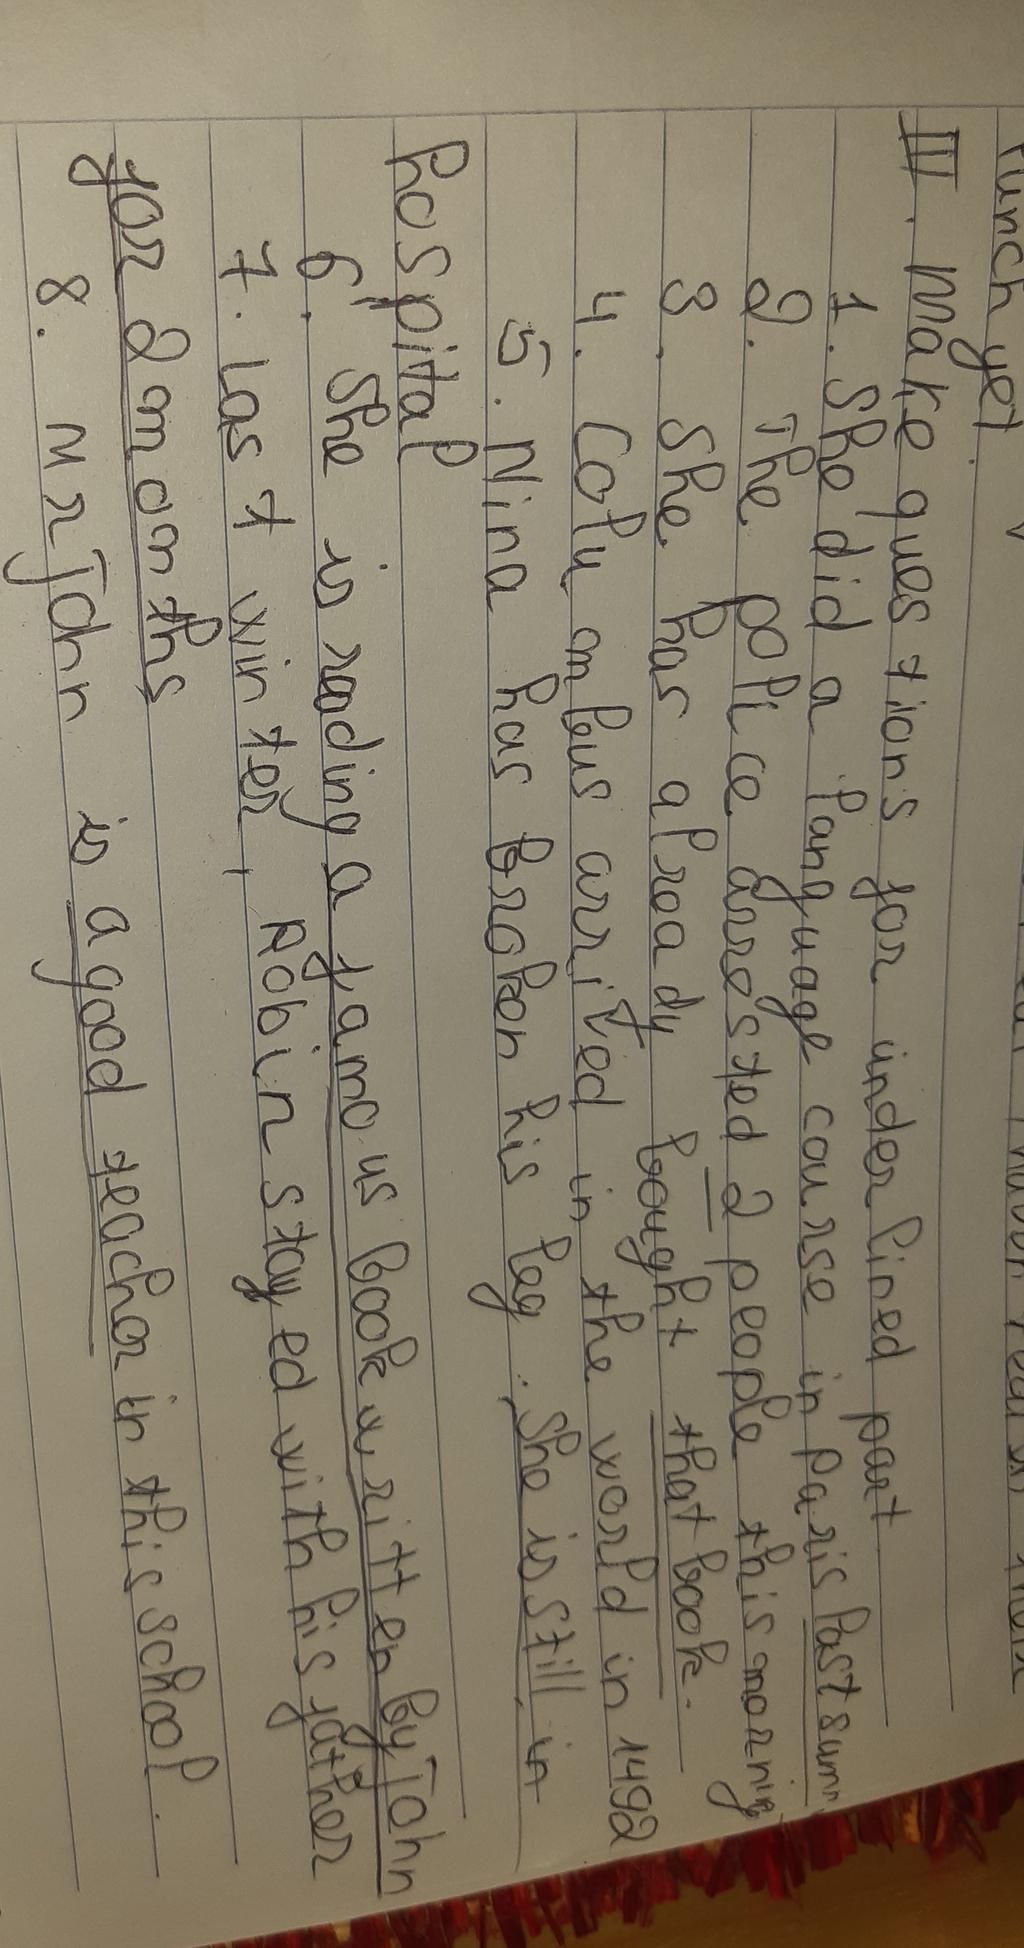 lunch yet
III. Make questions for underlined part
1. She did a language course in Paris last summ
2. The police arrested 2 people this morning
3. She has already bought that book.
4. Columbus arrived in the world in 1492
5. Nina has broken his leg. She is still in
hospital
6. She is reading a famous book written by John
7. Last winter, Robin stayed with his father
for 2 months
8. Mr John is a good teacher in this school.